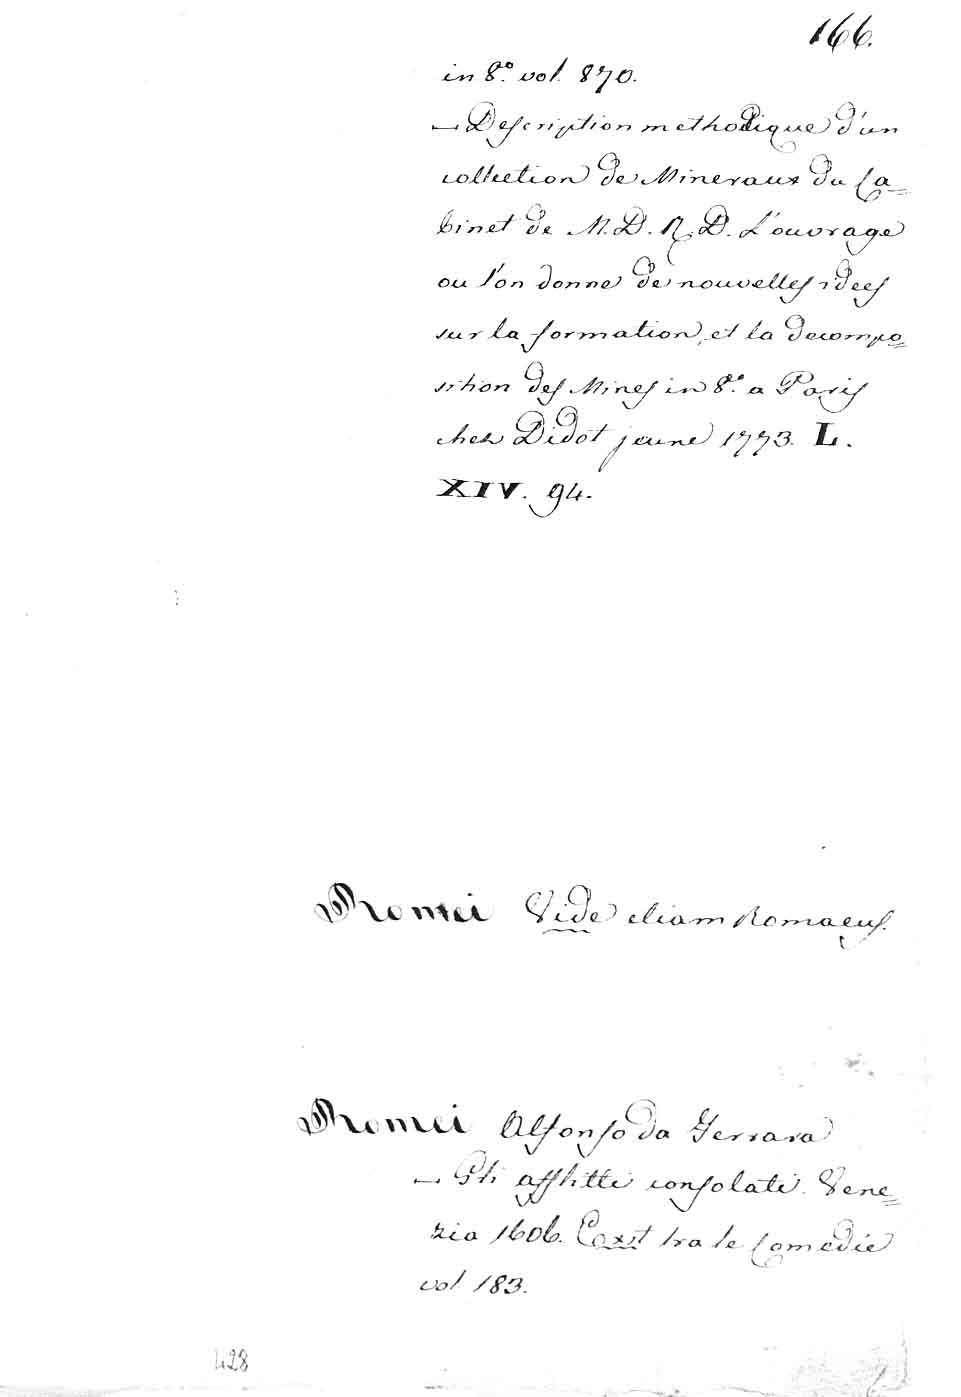 166.
in 8.º vol. 870.
— Description methodique d'un
collection de Mineraux du Ca=
binet de M. D. R. D. L'ouvrage
ou l'on donne de nouvelles idees
sur la formation, et la decompo=
sition des Mines in 8.º a Paris
chez Didot jeune 1773. L.
XIV. 94.
Romei Vide etiam Romaeus.
Romei Alfonso da Ferrara
— Gli afflitti consolati. Vene=
zia 1606. Exst tra le Comedie
vol 183.
428